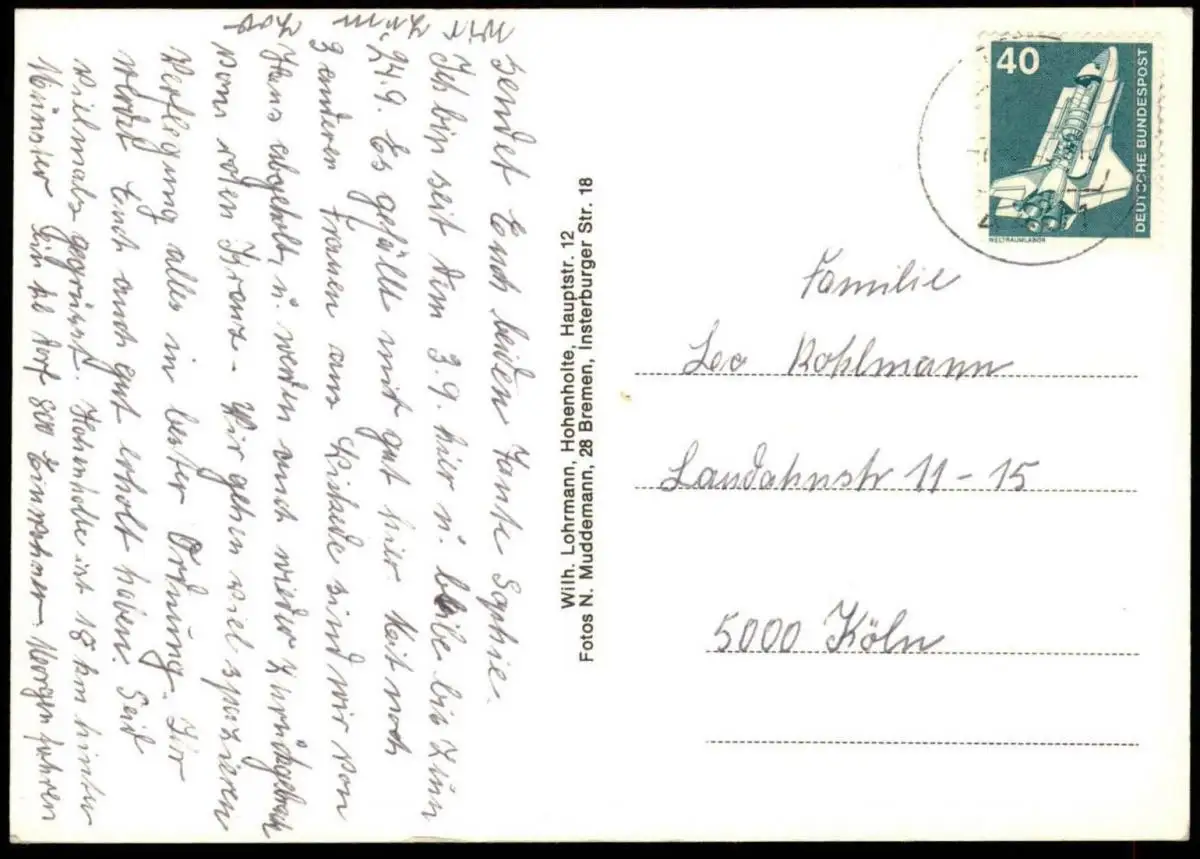 sendet Euch beiden Tante Sophie.
Ich bin seit dem 3.9. hier u. bleibe bis zum
24.9. Es gefällt mit gut hier. Mit noch
3 anderen Frauen aus sind wir von
Haus abgeholt, u. werden auch wieder zurückgebracht
vom roten Kreuz. Wir gehen viel spazieren
Verflegung alles in bester Ordnung. Ihr
werdet Euch auch gut erholt haben. Seid
vielmals gegrüsst. Hohenholte ist 18 km hinter
Münster Ein Dorf 800 Einwohner. Morgen fahren
wir zum Zoo
Wilh. Lohrmann, Hohenholte, Hauptstr. 12
Fotos N. Muddemann, 28 Bremen, Insterburger Str. 18
40
DEUTSCHE BUNDESPOST
WELTRAUMLABOR
Familie
Leo Kohlmann
Landahnstr 11-15
5000 Köln